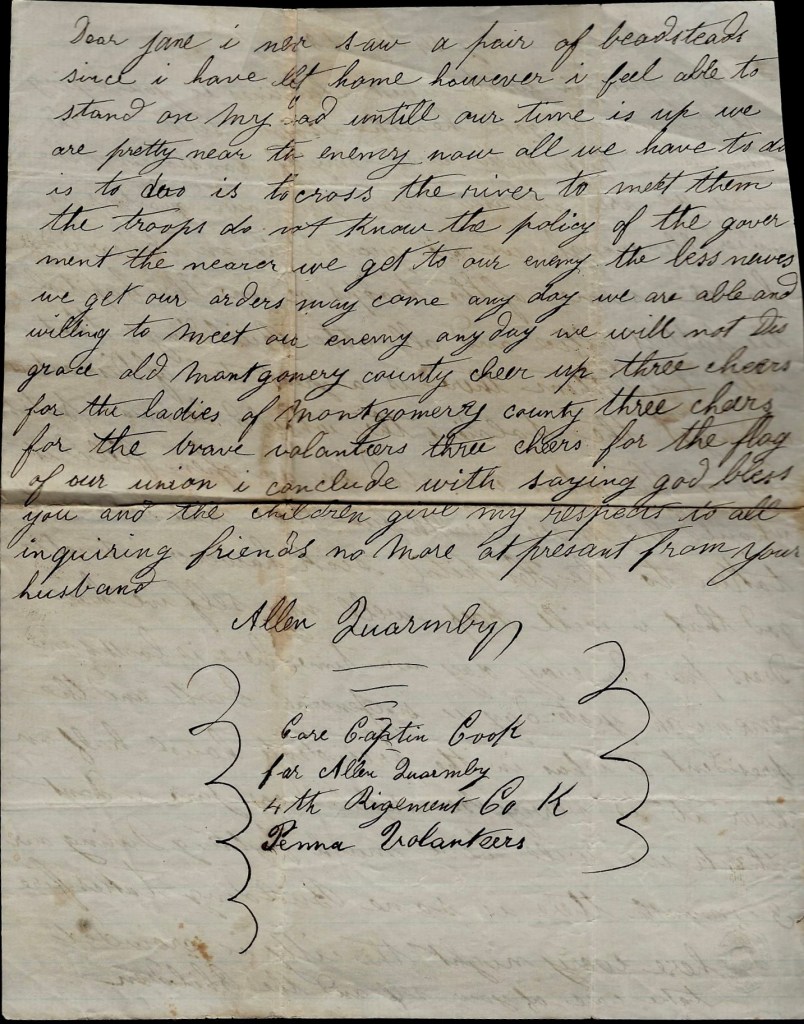 Dear jane i ner saw a pair of beadsteads
since i have left home however i feel able to
stand on my untill our time is up we
are pretty near th enemy now all we have to do
is to doo is to cross the river to meet them
the troops do not know the policy of the gover
ment the nearer we get to our enemy the less newes
we get our orders may come any day we are able and
willing to meet our enemy any day we will not Dis
grace old Montgomery county cheer up three cheers
for the ladies of Montgomerry county three cheirs
for the brave volanteers three cheers for the flag
of our union i conclude with saying god bless
you and the children give my respects to all
inquiring friends no More at presant from your
husband
Allen Quarmby
Care Captin Cook
for Allen Quarmby
4th Rigement Co K
Penna Volanteers